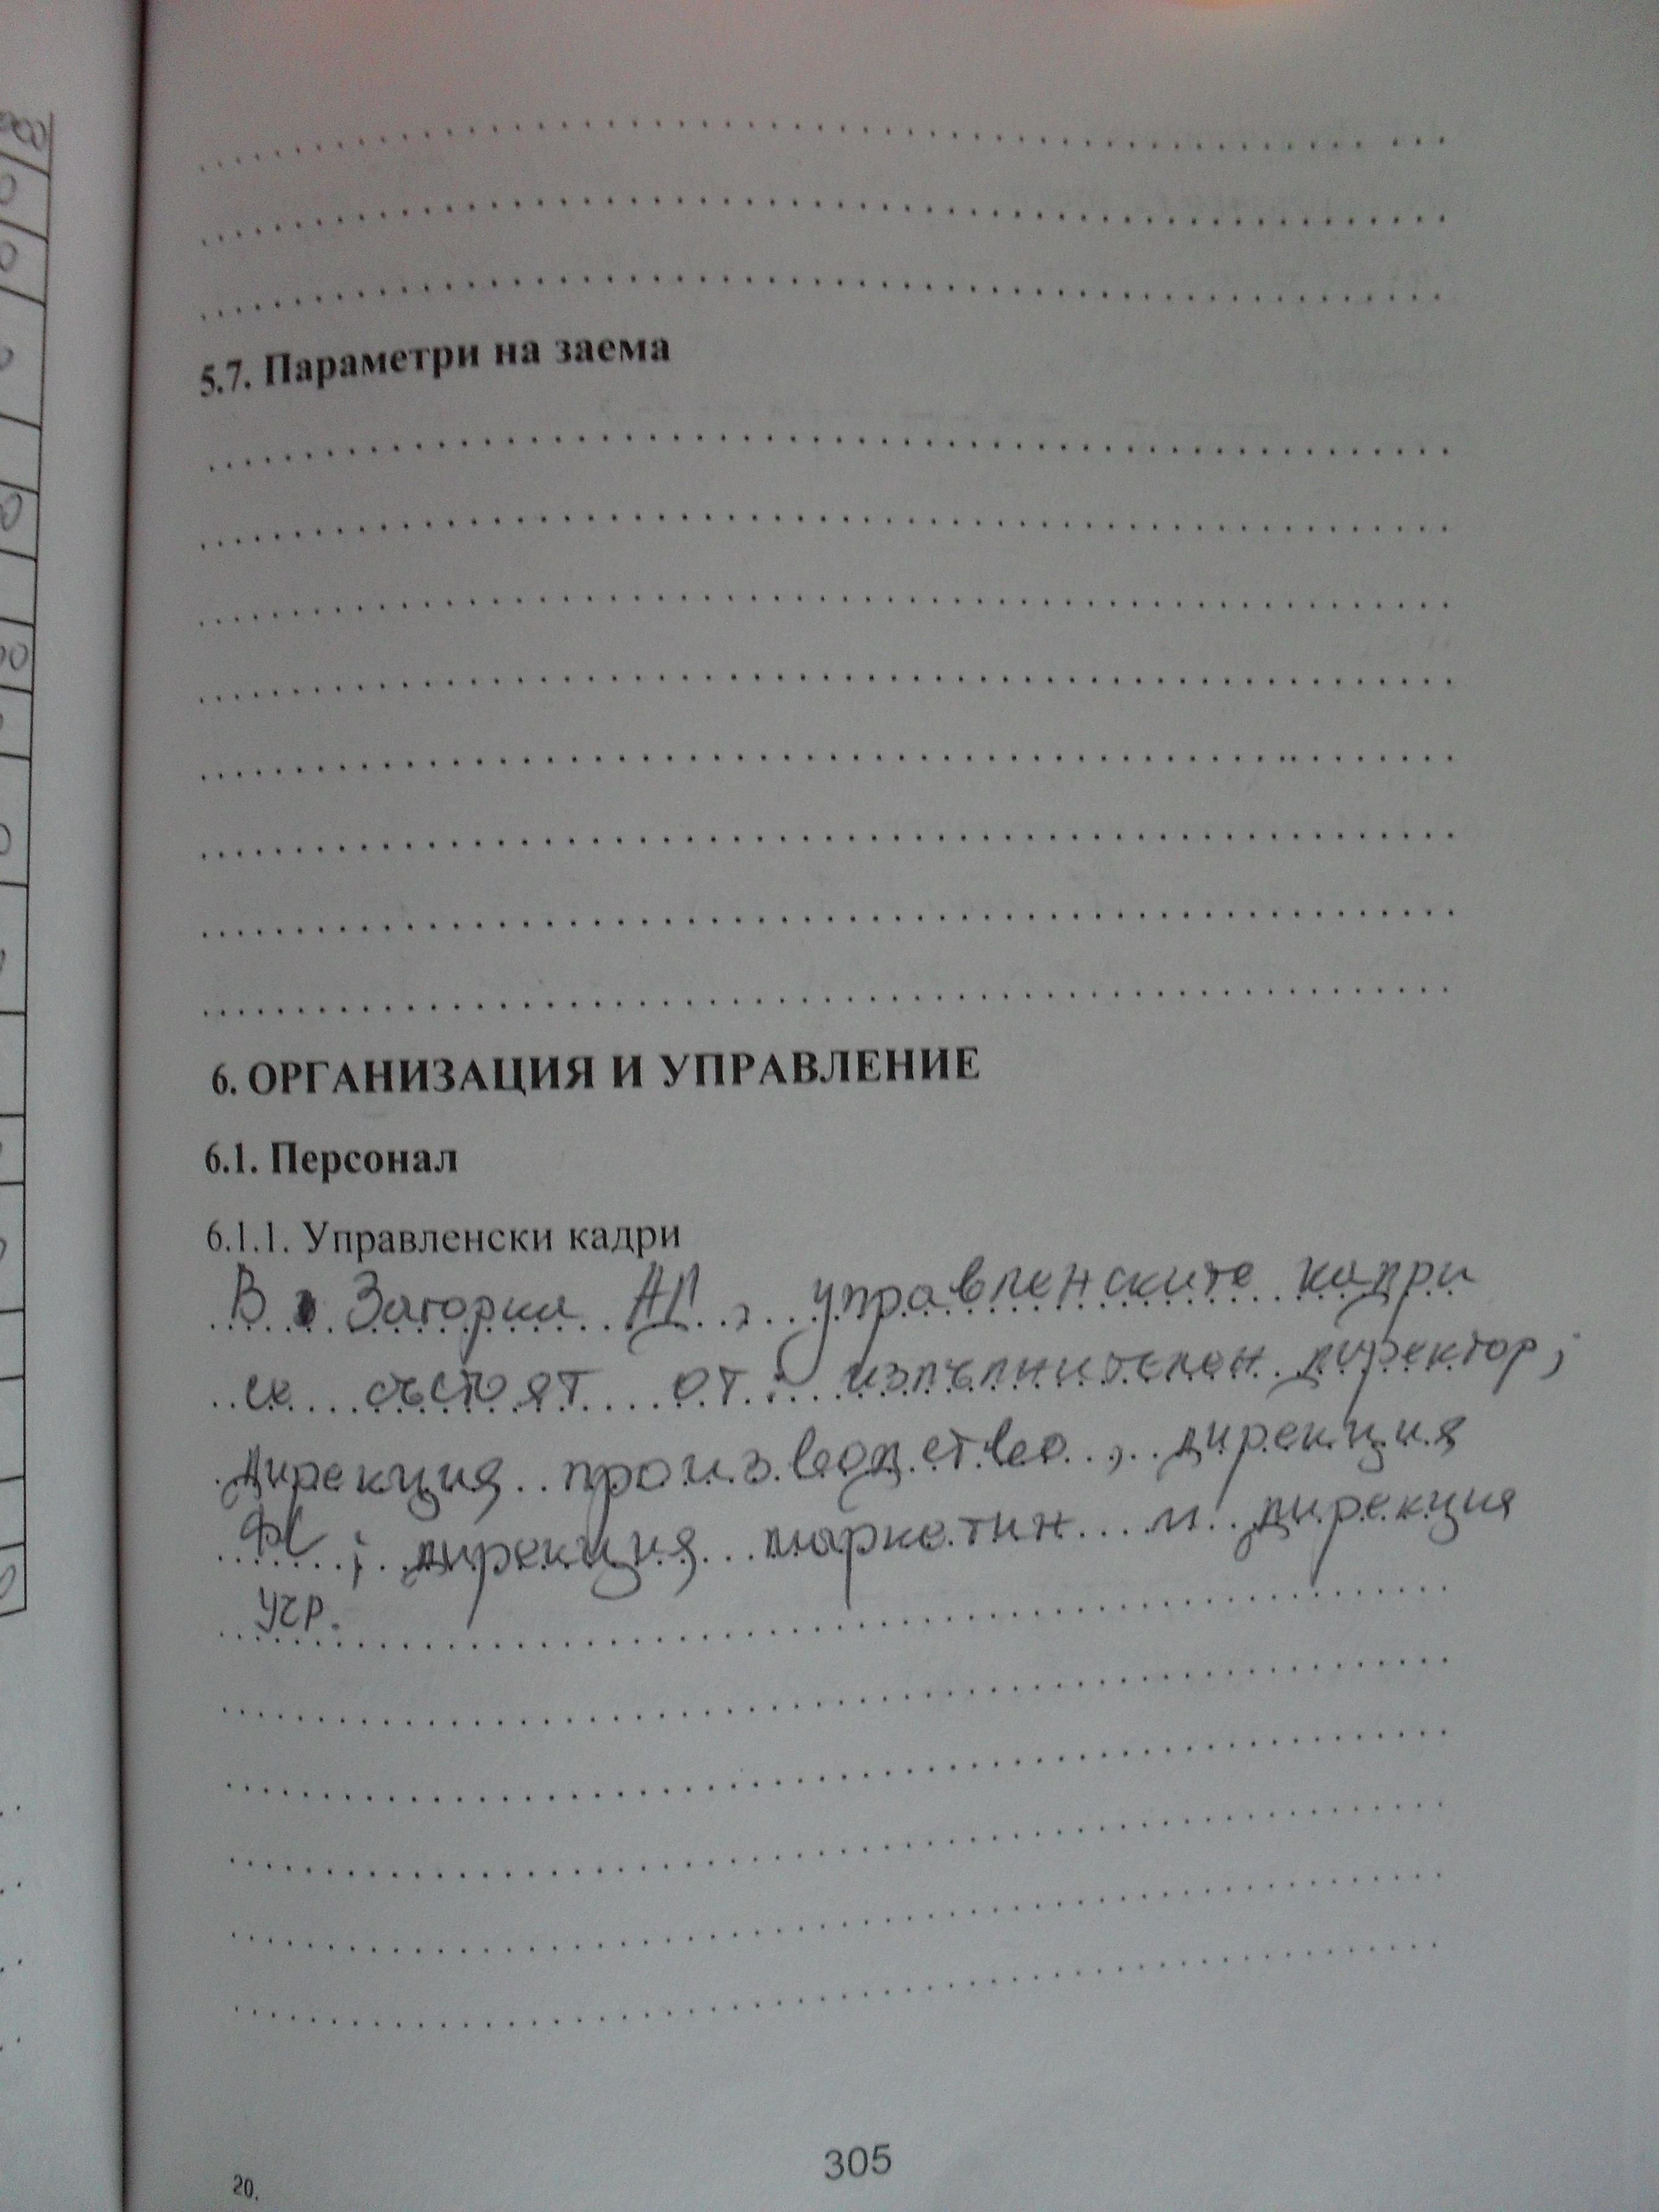 5.7. Параметри на заема
6. ОРГАНИЗАЦИЯ И УПРАВЛЕНИЕ
6.1. Персонал
6.1.1. Управленски кадри
В Загорка АД, управленските кадри
се състоят от: изпълнителен директор;
дирекция производство, дирекция
ФС; дирекция маркетин и дирекция
УЧР.
305
20.